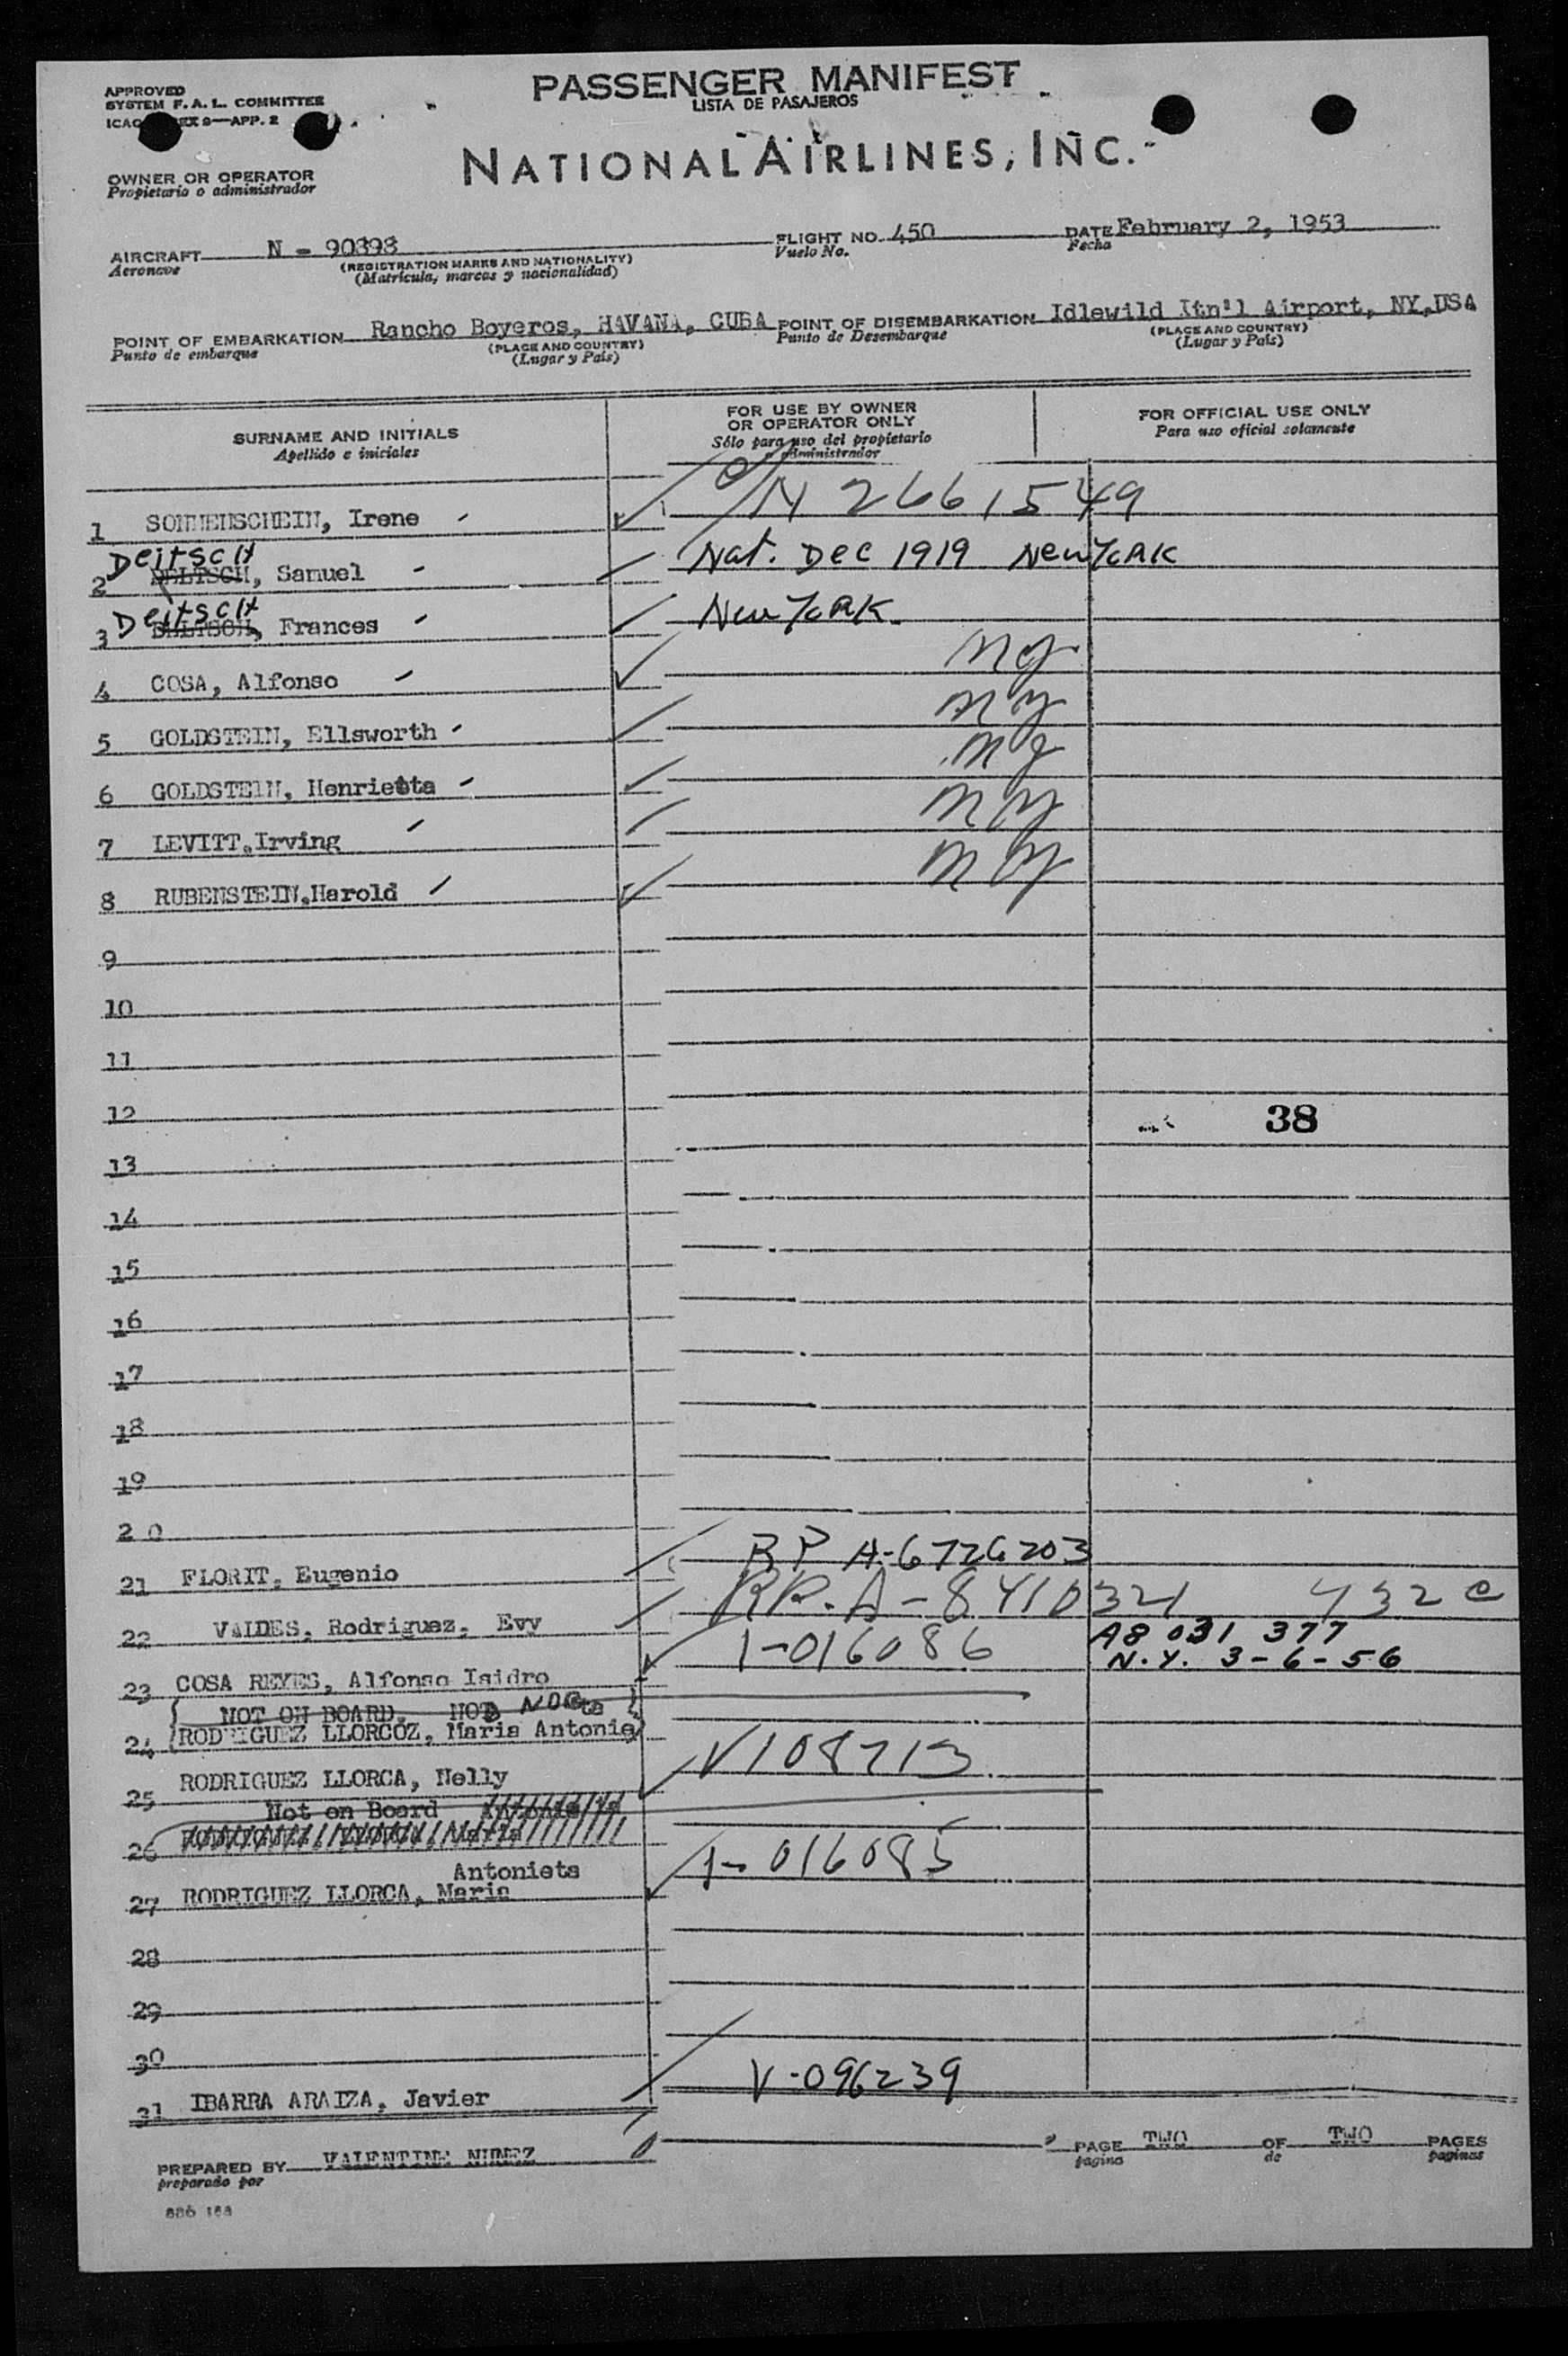 APPROVED
SYSTEM F. A. L. COMMITTEE
ICAO EX 9—APP. 2
PASSENGER MANIFEST
LISTA DE PASAJEROS
NATIONAL AIRLINES, INC.
OWNER OR OPERATOR
Propietario o administrador
AIRCRAFT N - 90898 FLIGHT NO. 450 DATE February 2, 1953
Aeronave (REGISTRATION MARKS AND NATIONALITY) Vuelo No. Fecha
(Matricula, marcas y nacionalidad)
POINT OF EMBARKATION Rancho Boyeros, HAVANA, CUBA POINT OF DISEMBARKATION Idlewild Itn'l Airport, NY,USA
Punto de embarque (PLACE AND COUNTRY) Punto de Desembarque (PLACE AND COUNTRY)
(Lugar y País) (Lugar y País)
SURNAME AND INITIALS FOR USE BY OWNER OR OPERATOR ONLY FOR OFFICIAL USE ONLY
Apellido e iniciales Sólo para uso del propietario o administrador Para uso oficial solamente
1 SONNENSCHEIN, Irene N 2661549
Deitsch
2 DELTSCH, Samuel Nat. Dec 1919 New YORK
Deitsch
3 DELTSCH, Frances New YORK
4 COSA, Alfonso ny
5 GOLDSTEIN, Ellsworth ny
6 GOLDSTEIN, Henrietta ny
7 LEVITT, Irving ny
8 RUBENSTEIN, Harold ny
9
10
11
12 38
13
14
15
16
17
18
19
20
21 FLORIT, Eugenio A-6726203
22 VALDES, Rodriguez, Evy A-8410321 432
23 COSA REYES, Alfonso Isidro 1-016086 A8 031 377
N.Y. 3-6-56
NOT ON BOARD.
24 RODRIGUEZ LLORCOZ, Maria Antonia
25 RODRIGUEZ LLORCA, Nelly V108713
Not on Board
26
Antonieta
27 RODRIGUEZ LLORCA, Maria 1-016085
28
29
30
31 IBARRA ARAIZA, Javier V-096239
PREPARED BY VALENTINE NUNEZ PAGE TWO OF TWO PAGES
preparado por pagina de paginas